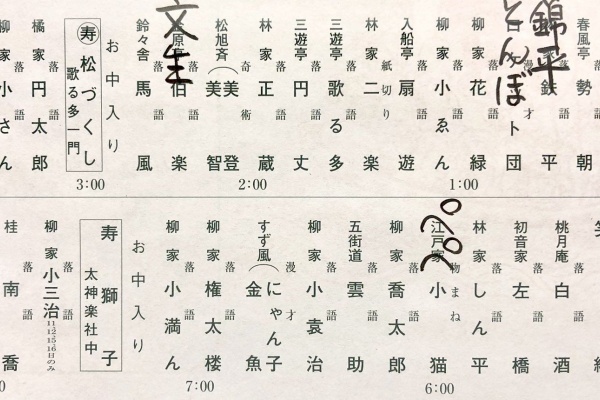 春風亭 落語 勢朝
落語 鉄平
錦平
漫才 ト団
とんぼ
柳家 落語 花緑
柳家 落語 小ゑん
入船亭 落語 扇遊
林家 紙切り 二楽
三遊亭 落語 歌る多
三遊亭 落語 円丈
林家 落語 正蔵
松旭斉 奇術 美智 美登
落語 伯楽
文生
鈴々舎 落語 馬風
お中入り
寿 松づくし
歌る多一門
橘家 落語 円太郎
柳家 落語 小さん
1:00
2:00
3:00
桃月庵 落語 白酒
初音家 落語 左橋
林家 落語 しん平
江戸家 物まね 小猫
柳家 落語 喬太郎
五街道 落語 雲助
柳家 落語 小袁治
すず風 漫才 にゃん子 金魚
柳家 落語 権太楼
柳家 落語 小満ん
お中入り
寿 獅子
太神楽社中
柳家 落語 小三治
11、12、15、16日のみ
桂 落語 南喬
6:00
7:00